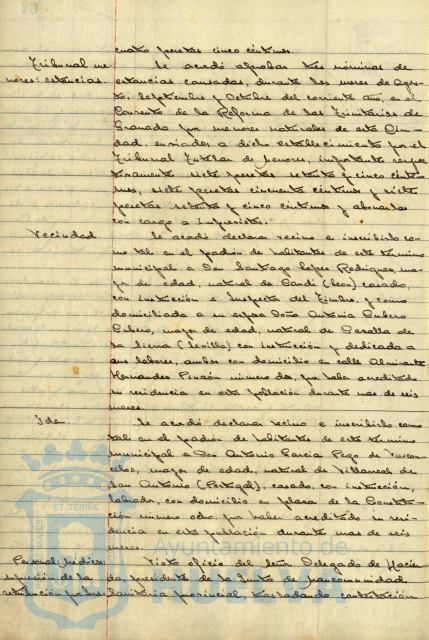 cuatro pesetas cinco céntimos.
Tribunal me-
nores: estancias.
Se acordó aprobar tres nóminas de
estancias causadas, durante los meses de Agos-
to, Septiembre y Octubre del corriente año, en el
Convento de la Reforma de las Trinitarias de
Granada por menores naturales de esta Ciu-
dad, enviados a dicho establecimiento por el
Tribunal Tutelar de Menores, importante respec-
tivamente siete pesetas setenta y cinco cénti-
mos, siete pesetas cincuenta céntimos y siete
pesetas setenta y cinco céntimos y abonarlas
con cargo a imprevistos.
Vecindad
Se acordó declarar vecino e inscribirlo co-
mo tal en el padrón de habitantes de este término
municipal a Don Santiago López Rodríguez, ma-
yor de edad, natural de (León) casado,
con instrucción e Inspector del Timbre, y como
domiciliada a su esposa Doña Antonia
mayor de edad, natural de Cazalla de
la Sierra (Sevilla) con instrucción y dedicada a
sus labores, ambos con domicilio en calle Almirante
Hernández Pinzón número dos, por haber acreditado
su residencia en esta población durante mas de seis
meses.
Idem.
Se acordó declarar vecino e inscribirlo como
tal en el padrón de habitantes de este término
municipal a Don Antonio García Pego de Vascon-
celos, mayor de edad, natural de Villareal de
San Antonio (Portugal), casado, con instrucción,
labrador, con domicilio en plaza de la Constitu-
ción número ocho, por haber acreditado su resi-
dencia en esta población durante mas de seis
meses.
Personal jurídico:
supresión de la
retribución por
Visto oficio del señor Delegado de Hacien-
da, presidente de la Junta de Mancomunidad
Sanitaria provincial, trasladando contestación
ET TERRAE
Ayuntamiento de
HUELVA